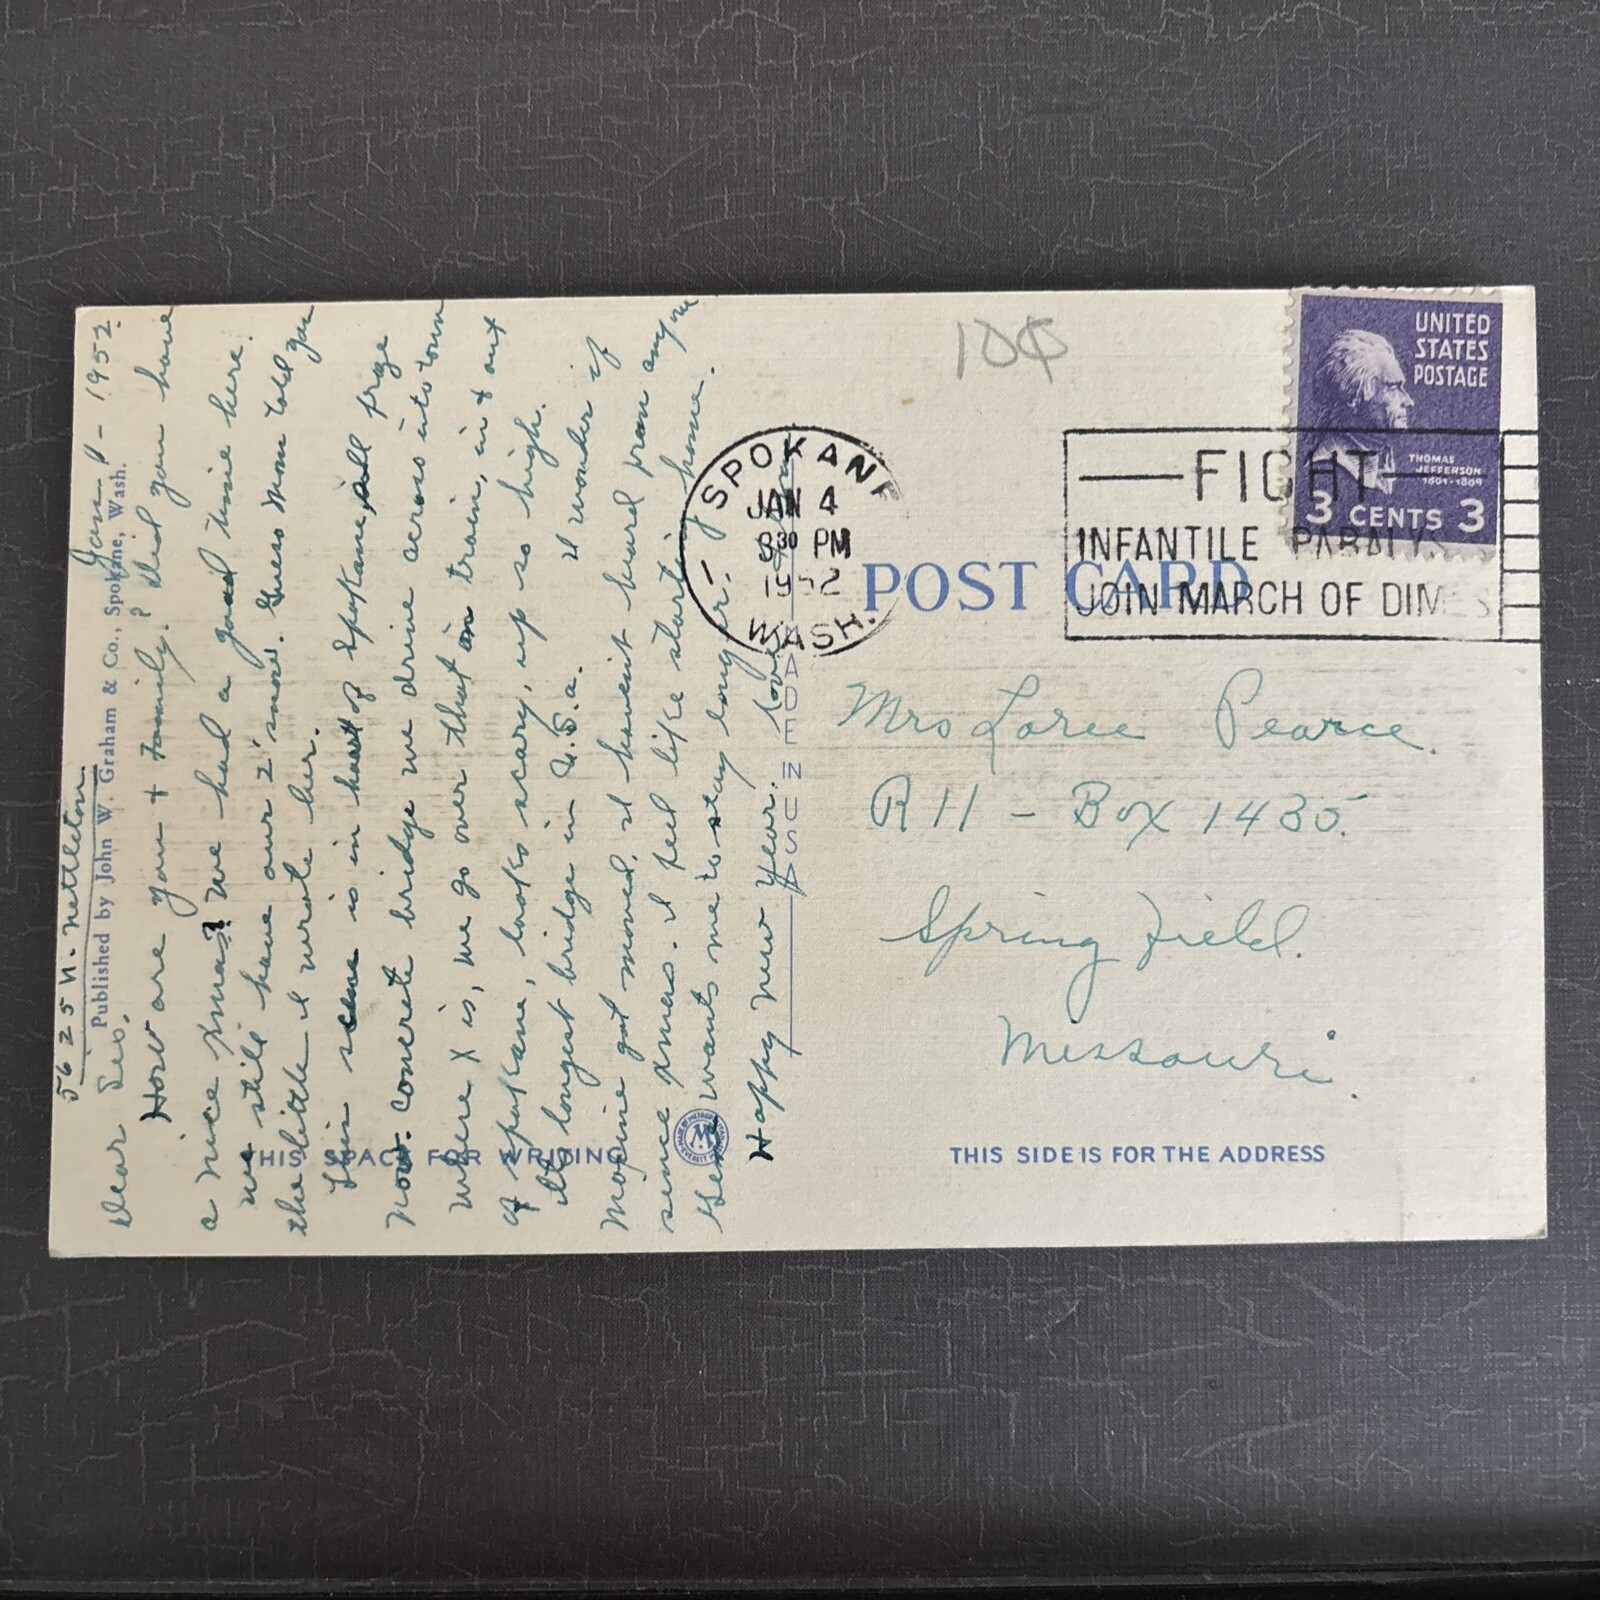 5625 N. Nettleton.
Jan. 1 - 1952.
Published by John W. Graham & Co., Spokane, Wash.
Dear
How are you + family? Did you have
a nice Xmas? We had a good time here.
we still have our 2' snow. Guess Mom told you
the little I wrote her.
This scene is in heart of Spokane, all froze
now. concrete bridge we drive across into town
where X is, we go over that on train, in + out
of Spokane, looks scary, up so high.
longest bridge in U.S.A. I wonder if
Maxine got moved, I havent heard from anyone
since Xmas. I feel like starting home.
wants me to stay longer.
Happy New Year. Love
THIS SPACE FOR WRITING
MADE IN USA
10¢
UNITED
STATES
POSTAGE
THOMAS
JEFFERSON
1801-1809
3 CENTS 3
SPOKANE
JAN 4
8 30 PM
1952
WASH.
FIGHT
INFANTILE PARALYSIS
JOIN MARCH OF DIMES
POST CARD
Mrs Loree Pearce.
R 11 - Box 1435.
Spring Field.
Missouri.
THIS SIDE IS FOR THE ADDRESS